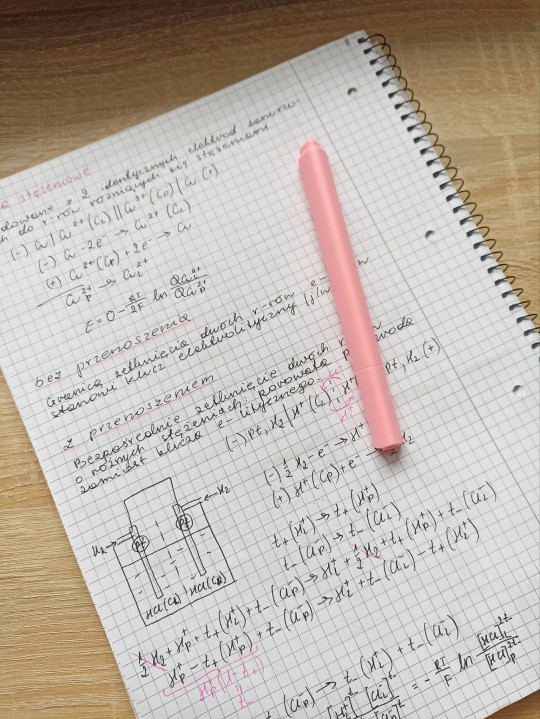 stężeniowe
z 2 identycznych elektrod
do r-rów różniących się stężeniem
(-) Cu | Cu²⁺(CL) || Cu²⁺(CP) | Cu (+)
(-) Cu - 2e⁻ → Cu²⁺(CL)
(+) Cu²⁺(CP) + 2e⁻ → Cu
Cu²⁺P → Cu²⁺L
E = 0 - RT/2F ln aCu²⁺L/aCu²⁺P
bez przenoszenia
Granicą zetknięcia dwóch r-rów
stanowi klucz elektrolityczny
z przenoszeniem
Bezpośrednie zetknięcie dwóch
o różnych stężeniach; porowata
zamiast klucza e-litycznego
(-) Pt, H₂ | H⁺(CL) Pt, H₂ (+)
(-) ½ H₂ - e⁻ → H⁺
(+) H⁺(CP) + e⁻ → H₂
t₊(H⁺L) → t₊(H⁺P)
t₋(Cl⁻P) → t₋(Cl⁻L)
H₂
H₂
Pt
Pt
HCl(CL)
HCl(CP)
½ H₂ + H⁺P + t₊(H⁺L) + t₋(Cl⁻P) → H⁺L + ½ H₂ + t₊(H⁺P) + t₋(Cl⁻L)
H⁺P - t₊(H⁺P) + t₋(Cl⁻P) → H⁺L + t₋(Cl⁻L) - t₊(H⁺L)
H⁺P(1-t₊)
t₋
(Cl⁻P) → t₋(H⁺L) + t₋(Cl⁻L)
= - RT/F ln [HCl]L²ᵗ⁻/[HCl]P²ᵗ⁻